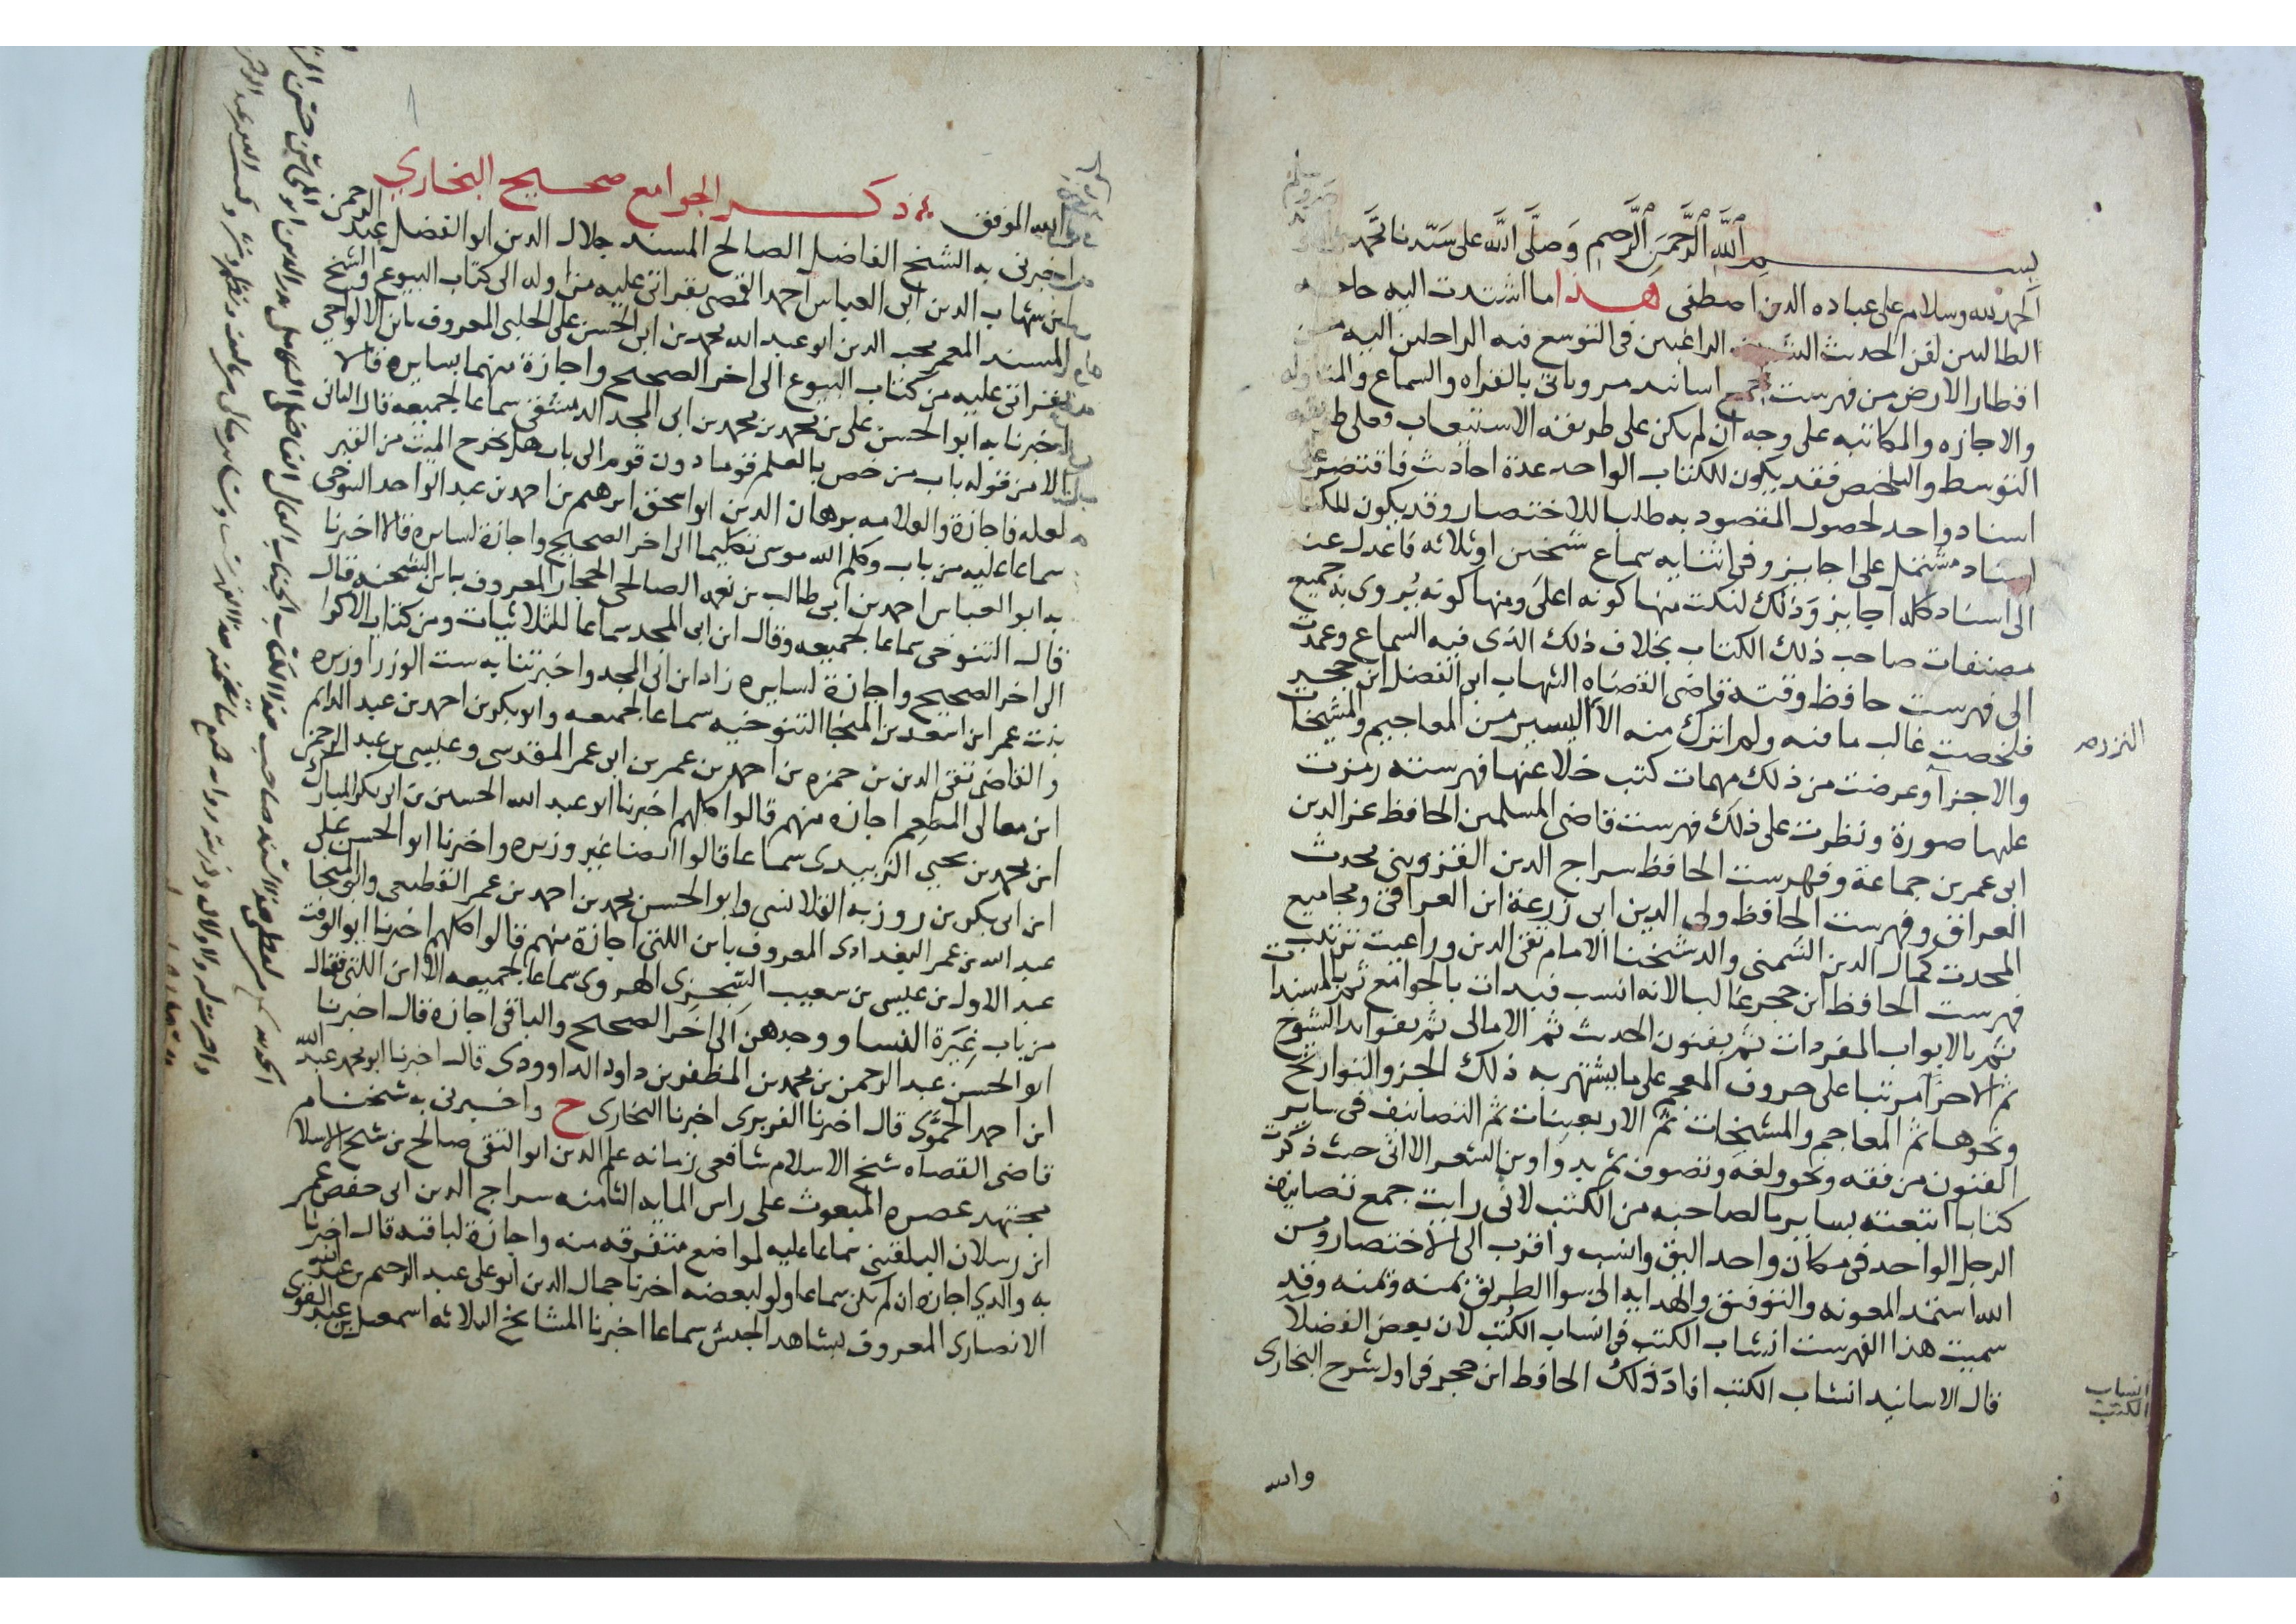 بسم الله الرحمن الرحيم وصلى الله على سيدنا محمد
الحمد لله وسلام على عباده الذين اصطفى هذا ما اشتدت اليه حاجه
الطالبين لفن الحديث الراغبين فى التوسع فيه الراحلين اليه من
اقطار الارض من فهرست جمع اسانيد مروياتى بالقراه والسماع والمناوله
والاجازه والمكاتبه على وجه ان لم يكن على طريقة الاستيعاب فعلى طريقه
التوسط والتلخيص فقد يكون للكتاب الواحد عدة احاديث فاقتصر على
اسناد واحد لحصول المقصود به طلبا للاختصار وقد يكون للكتاب
اسناد مشتمل على اجايز وفى اثنايه سماع شيخين او ثلاثه فاعدل عنه
الى اسناد كله اجايز وذلك لنكت منها كونه اعلى ومنها كونه يروى به جميع
مصنفات صاحب ذلك الكتاب بخلاف ذلك الذى فيه السماع وعمدت
الى فهرست حافظ وقته قاضى القضاه الشهاب ابى الفضل ابن حجر
فلخصت غالب ما فيه ولم اترك منه الا اليسير من المعاجيم والمشيخات
والاجزآ وعرضت من ذلك مهمات كتب خلا عنها فهرسته رمزت
عليها صورة ونظرت على ذلك فهرست قاضى المسلمين الحافظ عز الدين
ابى عمر بن جماعة وفهرست الحافظ سراج الدين القزوينى محدث
العراق وفهرست الحافظ ولى الدين ابى زرعة ابن العراقى ومجاميع
المحدث كمال الدين الشمنى والد شيخنا الامام تقى الدين وراعيت ترتيب
فهرست الحافظ ابن حجر غالبا لانه انسب فبدات بالجوامع ثم بالمسندات
ثم بالابواب المفردات ثم بفنون الحديث ثم الامالى ثم بفوايد الشيوخ
ثم الاجزآ مرتبا على حروف المعجم على ما يشتهر به ذلك الجز والتواريخ
ونحوها ثم المعاجم والمشيخات ثم الاربعينات ثم التصانيف فى ساير
الفنون من فقه ونحو ولغة وتصوف ثم بدواوين الشعر الا انى حيث ذكرت
كتابا اتبعته بساير ما لصاحبه من الكتب لانى رايت جمع تصانيف
الرجل الواحد فى مكان واحد اليق وانسب واقرب الى الاختصار ومن
الله استمد المعونه والتوفيق والهدايه الى سوا الطريق بمنه ويمنه وقد
سميت هذا الفهرست انشاب الكتب فى انساب الكتب لان بعض الفضلآ
قال الاسانيد انشاب الكتب افاد ذلك الحافظ ابن حجر فى اول شرح البخارى
انساب
الكتب
والله
الله الموفق ذكر الجوامع صحيح البخاري
اخبرنى به الشيخ الفاضل الصالح المسند جلال الدين ابو الفضل عبد الرحمن
ابن شهاب الدين ابى العباس احمد القمصى بقراتى عليه من اوله الى كتاب البيوع والشيخ
المسند المعمر محب الدين ابو عبد الله محمد بن ابى الحسن على الحلبى المعروف بابن الالواحي
بقراتى عليه من كتاب البيوع الى اخر الصحيح واجازة منهما بسايره قالا
اخبرنا به ابو الحسن على بن محمد بن محمد بن ابى المجد الدمشقى سماعا لجميعه قال الثانى
الا من قوله باب من خص بالعلم قوما دون قوم الى باب هل يخرج الميت من القبر
لعله فاجازة والعلامه برهان الدين ابو اسحق ابرهيم بن احمد بن عبد الواحد التنوخى
سماعا عليه من باب وكلم الله موسى تكليما الى اخر الصحيح واجازة لسايره قالا اخبرنا
به ابو العباس احمد بن ابى طالب بن نعمه الصالحى الحجار المعروف بابن الشحنه قال
قال التنوخى سماعا لجميعه وقال ابن ابى المجد سماعا للثلاثيات ومن كتاب الاكراه
الى اخر الصحيح واجازة لسايره زاد ابن ابى المجد واخبرتنا به ست الوزرا وزيره
بنت عمر ابن اسعد بن المنجا التنوخيه سماعا لجميعه وابو بكر بن احمد بن عبد الدايم
والقاضى تقى الدين بن حمزه بن احمد بن عمر بن ابى عمر المقدسى وعيسى بن عبد الرحمن
ابن معالى المطعم اجازه منهم قالوا كلهم اخبرنا ابو عبد الله الحسين بن ابى بكر المبارك
ابن محمد بن يحيى الزبيدى سماعا قالوا ايضا غير وزيره واخبرنا ابو الحسن على
ابن ابى بكر بن روزبه القلانسى وابو الحسن محمد بن احمد بن عمر القطيعى وابو المنجا
عبد الله بن عمر البغدادى المعروف بابن اللتى اجازة منهم قالوا كلهم اخبرنا ابو الوقت
عبد الاول بن عيسى بن سعيب السجزى الهروى سماعا لجميعه الا ابن اللتى فقال
من باب غيرة النسا ووجدهن الى اخر الصحيح والباقى اجازه قال اخبرنا
ابو الحسن عبد الرحمن بن محمد بن المظفر بن داود الداوودى قال اخبرنا ابو محمد عبد الله
ابن احمد الحموى قال اخبرنا الفربرى اخبرنا البخارى ح واخبرنى به شيخنا
قاضى القضاه شيخ الاسلام شافعى زمانه علم الدين ابو التقى صالح بن شيخ الاسلام
مجتهد عصره المبعوث على راس المايه الثامنه سراج الدين ابى حفص عمر
ابن رسلان البلقينى سماعا عليه لمواضع متفرقه منه واجازة لباقيه قال اخبرنا
به والدي اجازه ان لم يكن سماعا ولو لبعضه اخبرنا جمال الدين ابو على عبد الرحيم بن عبد الله
الانصارى المعروف بشاهد الجيش سماعا اخبرنا المشايخ الثلاثه اسمعيل بن عبد القوى